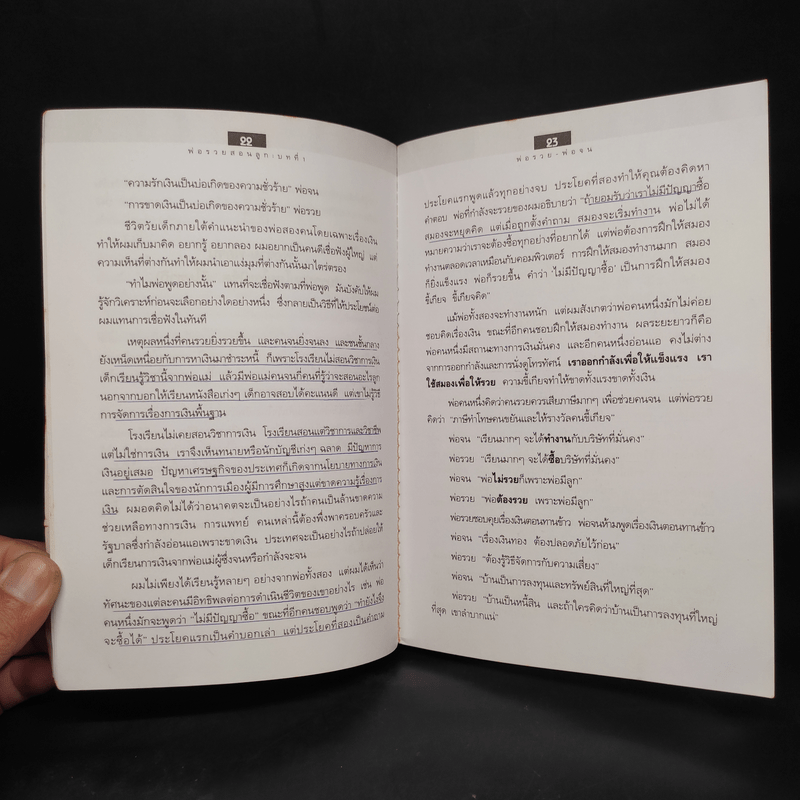 ๒๒
พ่อรวยสอนลูก : บทที่ 1
"ความรักเงินเป็นบ่อเกิดของความชั่วร้าย" พ่อจน
"การขาดเงินเป็นบ่อเกิดของความชั่วร้าย" พ่อรวย
ชีวิตวัยเด็กภายใต้คำแนะนำของพ่อสองคนโดยเฉพาะเรื่องเงิน
ทำให้ผมเก็บมาคิด อยากรู้ อยากลอง ผมอยากเป็นคนดีเชื่อฟังผู้ใหญ่ แต่
ความเห็นที่ต่างกันทำให้ผมนำเอาแง่มุมที่ต่างกันนั้นมาไตร่ตรอง
"ทำไมพ่อพูดอย่างนั้น" แทนที่จะเชื่อฟังตามที่พ่อพูด มันบังคับให้ผม
รู้จักวิเคราะห์ก่อนจะเลือกอย่างใดอย่างหนึ่ง ซึ่งกลายเป็นวิธีที่ให้ประโยชน์ต่อ
ผมแทนการเชื่อฟังในทันที
เหตุผลหนึ่งที่คนรวยยิ่งรวยขึ้น และคนจนยิ่งจนลง และชนชั้นกลาง
ยังเหน็ดเหนื่อยกับการหาเงินมาชำระหนี้ ก็เพราะโรงเรียนไม่สอนวิชาการเงิน
เด็กเรียนรู้วิชานี้จากพ่อแม่ แล้วมีพ่อแม่คนจนกี่คนที่รู้ว่าจะสอนอะไรลูก
นอกจากบอกให้เรียนหนังสือเก่งๆ เด็กอาจสอบได้คะแนนดี แต่เขาไม่รู้วิธี
การจัดการเรื่องการเงินพื้นฐาน
โรงเรียนไม่เคยสอนวิชาการเงิน โรงเรียนสอนแต่วิชาการและวิชาชีพ
แต่ไม่ใช่การเงิน เราจึงเห็นทนายหรือนักบัญชีเก่งๆ ฉลาด มีปัญหาการ
เงินอยู่เสมอ ปัญหาเศรษฐกิจของประเทศก็เกิดจากนโยบายทางการเงิน
และการตัดสินใจของนักการเมืองผู้มีการศึกษาสูงแต่ขาดความรู้เรื่องการ
เงิน ผมอดคิดไม่ได้ว่าอนาคตจะเป็นอย่างไรถ้าคนเป็นล้านขาดความ
ช่วยเหลือทางการเงิน การแพทย์ คนเหล่านี้ต้องพึ่งพาครอบครัวและ
รัฐบาลซึ่งกำลังอ่อนแอเพราะขาดเงิน ประเทศจะเป็นอย่างไรถ้าปล่อยให้
เด็กเรียนการเงินจากพ่อแม่ผู้ซึ่งจนหรือกำลังจะจน
ผมไม่เพียงได้เรียนรู้หลายๆ อย่างจากพ่อทั้งสอง แต่ผมได้เห็นว่า
ทัศนะของแต่ละคนมีอิทธิพลต่อการดำเนินชีวิตของเขาอย่างไร เช่น พ่อ
คนหนึ่งมักจะพูดว่า "ไม่มีปัญญาซื้อ" ขณะที่อีกคนชอบพูดว่า "ทำยังไงถึง
จะซื้อได้" ประโยคแรกเป็นคำบอกเล่า แต่ประโยคที่สองเป็นคำถาม
๒๓
พ่อรวย - พ่อจน
ประโยคแรกพูดแล้วทุกอย่างจบ ประโยคที่สองทำให้คุณต้องคิดหา
คำตอบ พ่อที่กำลังจะรวยของผมอธิบายว่า "ถ้ายอมรับว่าเราไม่มีปัญญาซื้อ
สมองจะหยุดคิด แต่เมื่อถูกตั้งคำถาม สมองจะเริ่มทำงาน พ่อไม่ได้
หมายความว่าเราจะต้องซื้อทุกอย่างที่อยากได้ แต่พ่อต้องการฝึกให้สมอง
ทำงานตลอดเวลาเหมือนกับคอมพิวเตอร์ การฝึกให้สมองทำงานมาก สมอง
ก็ยิ่งแข็งแรง พ่อก็รวยขึ้น คำว่า 'ไม่มีปัญญาซื้อ' เป็นการฝึกให้สมอง
ขี้เกียจ ขี้เกียจคิด"
แม้พ่อทั้งสองจะทำงานหนัก แต่ผมสังเกตว่าพ่อคนหนึ่งมักไม่ค่อย
ชอบคิดเรื่องเงิน ขณะที่อีกคนชอบฝึกให้สมองทำงาน ผลระยะยาวก็คือ
พ่อคนหนึ่งมีสถานะทางการเงินมั่นคง และอีกคนหนึ่งอ่อนแอ คงไม่ต่าง
จากการออกกำลังและการนั่งดูโทรทัศน์ เราออกกำลังเพื่อให้แข็งแรง เรา
ใช้สมองเพื่อให้รวย ความขี้เกียจทำให้ขาดทั้งแรงขาดทั้งเงิน
พ่อคนหนึ่งคิดว่าคนรวยควรเสียภาษีมากๆ เพื่อช่วยคนจน แต่พ่อรวย
คิดว่า "ภาษีทำโทษคนขยันและให้รางวัลคนขี้เกียจ"
พ่อจน "เรียนมากๆ จะได้ทำงานกับบริษัทที่มั่นคง"
พ่อรวย "เรียนมากๆ จะได้ซื้อบริษัทที่มั่นคง"
พ่อจน "พ่อไม่รวยก็เพราะพ่อมีลูก"
พ่อรวย "พ่อต้องรวย เพราะพ่อมีลูก"
พ่อรวยชอบคุยเรื่องเงินตอนทานข้าว พ่อจนห้ามพูดเรื่องเงินตอนทานข้าว
พ่อจน "เรื่องเงินทอง ต้องปลอดภัยไว้ก่อน"
พ่อรวย "ต้องรู้วิธีจัดการกับความเสี่ยง"
พ่อจน "บ้านเป็นการลงทุนและทรัพย์สินที่ใหญ่ที่สุด"
พ่อรวย "บ้านเป็นหนี้สิน และถ้าใครคิดว่าบ้านเป็นการลงทุนที่ใหญ่
ที่สุด เขาลำบากแน่"